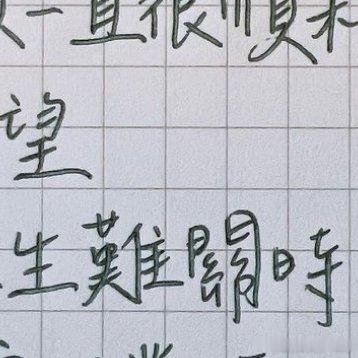 一直很順利
望
生難關時